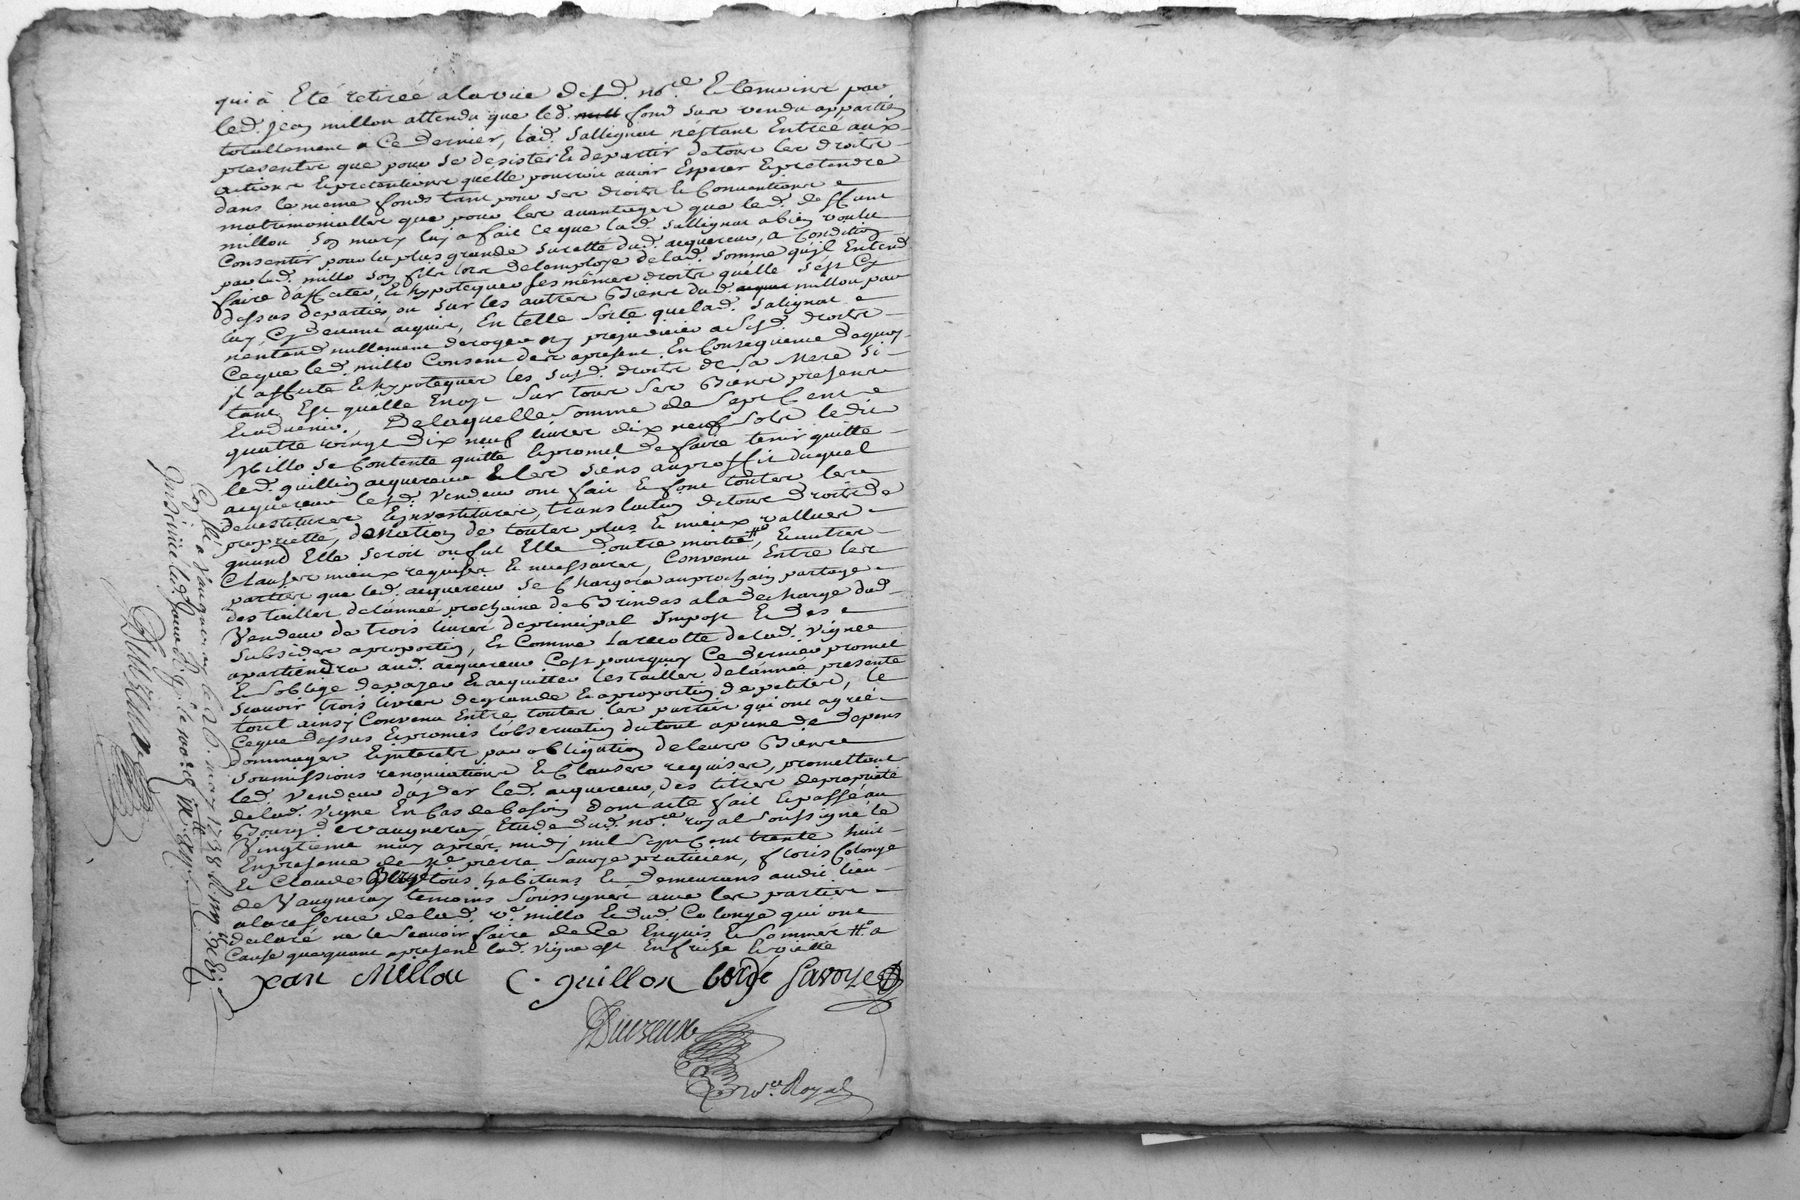 qui à Eté retirée alavüe desd. no.re Et temoins par
led. jean millou attendu que led. fond sus vendu appartien
totallement a Ce dernier, lad. sallignat nestant Entrée aux
presentes que pour se desister Et departir detous les droits
actions Et pretentions quelle pourroit avoir Esperer Et pretendre
dans le meme fonds tant pour ses droits Et Conventions
matrimonialles que pour les avantages que led. deffunt
millou son mary luy a fait Ce que lad. sallignat a bien voulu
Consentir pour la plus grande suretté dud. acquereur, a Condition
par led. millo son fils lors delemploye delad. somme quil Entend
faire daffecter, Et hypotequer ses mêmes droits quelle sest Cy
dessus departie, ou sur les autres Biens dud. millou par
luy Cy devant acquis, En telle sorte que lad. salignat
nentend nullement deroger ny prejudicier a sesd. droits
Ceque led. millo Consent des apresent, En Consequence dequoy
jl affecte Et hypotequer les susd. droits de sa Mere si
tant Est quelle En oye sur tous ses Biens presents
Et advenir. Delaquelle somme de sept Cent
quatre vingt dix neuf livres dix neuf sols ledit
Millo se Contente quitte Et promet de faire tenir quitte
led. guillon acquereur Et les siens auproffit duquel
acquereur lesd. vendeur ont fait Et font toutes les
devestitures Et jnvestitures, translation de tous droits de
proprietté, donation de toutes plus Et mieux vallues
quand Elle seroit ou fut Elle doutre moitié, Et autres
Clauses mieux requises Et necessaires, Convenu Entre les
parties que led. acquereur se Chargera au prochain partage
des tailles delannée prochaine de Brindas ala decharge dud.
Vendeur de trois livres deprincipal Impost Et des
subsides aproportion, Et Comme larecotte delad. vigne
apartiendra aud. acquereur Cest pourquoy Ce dernier promet
Et soblige depayer Et acquitter les tailles delannée presente
scavoir trois livres degrande Et aproportion de petites, le
tout ainsy Convenu Entre toutes les parties qui ont agrée
Ceque dessus Et promis lobservation du tout apeine de depens
dommages Et jnterets par obligation de leurs Biens
soumissions renonciations Et Clauses requises, promettant
led. vendeur dayder led. acquereur, des titres depropriété
delad. vigne En Cas de besoin dont acte fait Et passé au
Bourg de Vaugneray Etude dud. no.re royal soussigné le
Vingtieme may après midy mil sept Cent trente huit
En presence de pierre savoye praticien, floris Colonge
Et Claude Borge tous habitans Et demeurans audit lieu
de Vaugneray temoins soussignés avec les parties
alareserve delad. v.e millo Et dud. Colonge qui ont
declaré ne le scavoir faire de Ce Enquis Et sommes # a
Cause que quant apresent lad. vigne est En frise Et viette
jean Millou C. guillon borge savoye
Duizeux
no.re Royal
Con.llé a Vaugneray le 26. may 1738
Insinué led. jour